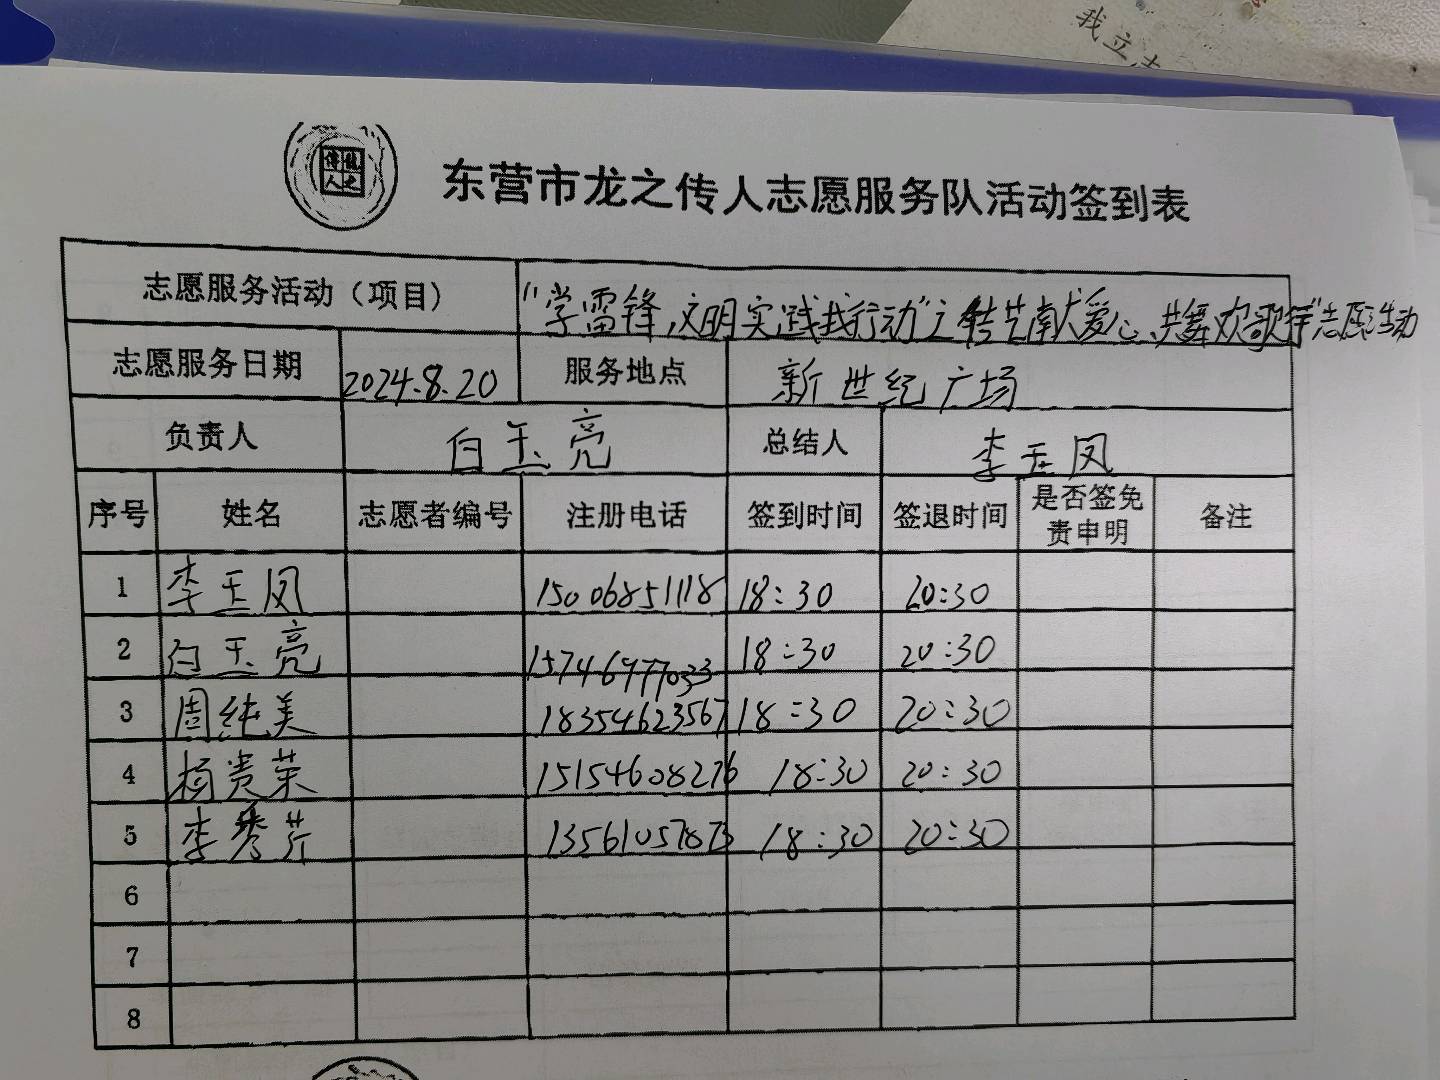 我立志
龙之传人
东营市龙之传人志愿服务队活动签到表
志愿服务活动（项目） "学雷锋,文明实践我行动"之传艺献爱心、共舞欢歌行"志愿活动
志愿服务日期 2024.8.20 服务地点 新世纪广场
负责人 白玉亮 总结人 李玉凤
序号 姓名 志愿者编号 注册电话 签到时间 签退时间 是否签免责申明 备注
1 李玉凤 15006851118 18:30 20:30
2 白玉亮 15746977033 18:30 20:30
3 周纯美 18354623567 18:30 20:30
4 杨贵荣 15154608276 18:30 20:30
5 李秀芹 13561057873 18:30 20:30
6
7
8